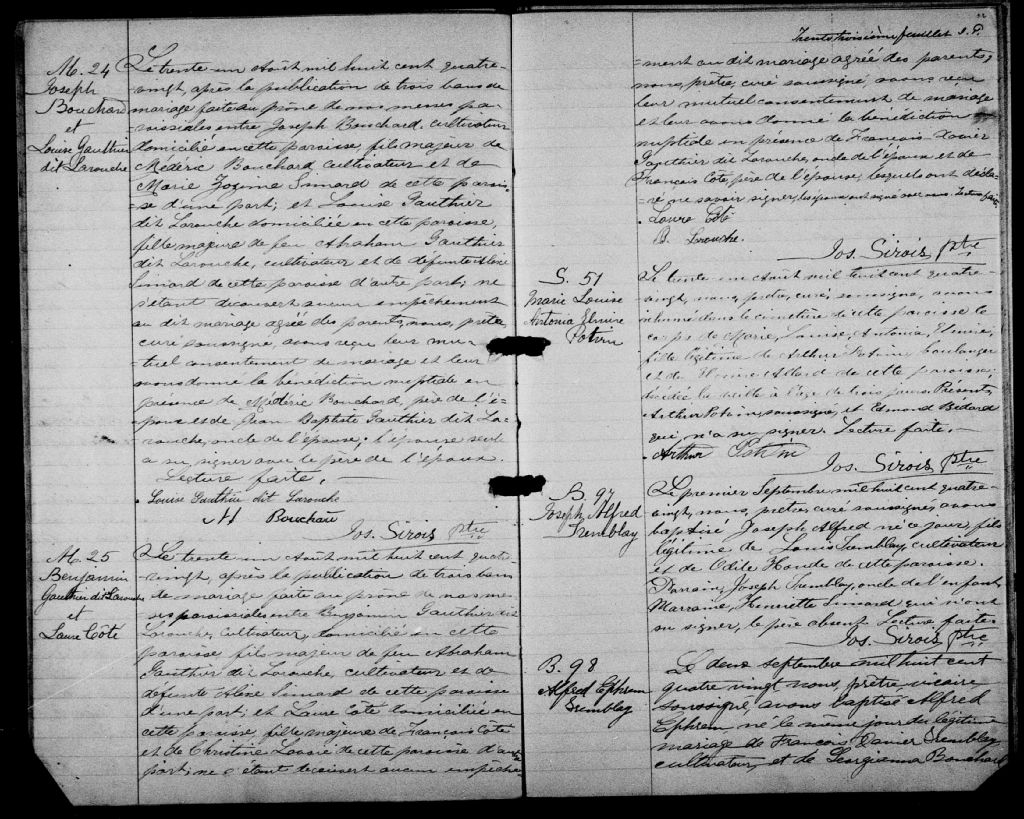 M. 24
Joseph
Bouchard
et
Louise Gauthier
dit Larouche
Le trente un Août mil huit cent quatre-
vingt, après la publication de trois bans de
mariage faite au prône de nos messes pa-
roissiales entre Joseph Bouchard, cultivateur
domicilié en cette paroisse, fils majeur de
Médéric Bouchard cultivateur et de
Marie Zozime Simard de cette parois-
se d'une part; et Louise Gauthier
dit Larouche domiciliée en cette paroisse,
fille majeure de feu Abraham Gauthier
dit Larouche, cultivateur et de défunte
Simard de cette paroisse d'autre part; ne
s'étant découvert aucun empêchement
au dit mariage agrée des parents, nous, prêtre,
curé soussigné, avons reçu leur mu-
tuel consentement de mariage et leur
avons donné la bénédiction nuptiale en
présence de Médéric Bouchard, père de l'é-
poux et de Jean Baptiste Gauthier dit La-
rouche, oncle de l'épouse; l'épouse seule
a su signer avec le père de l'époux.
Lecture faite.
Louise Gauthier dit Larouche
M Bouchard
Jos. Sirois ptre
M. 25
Benjamin
Gauthier dit Larouche
et
Laure Côté
Le trente un Août mil huit cent quatre-
vingt, après la publication de trois bans
de mariage faite au prône de nos mes-
ses paroissiales entre Benjamin Gauthier dit
Larouche, cultivateur, domicilié en cette
paroisse, fils majeur de feu Abraham
Gauthier dit Larouche, cultivateur et de
défunte Simard de cette paroisse
d'une part; et Laure Côté domiciliée en
cette paroisse, fille majeure de François Côté
et de Christine de cette paroisse d'autre
part; ne s'étant découvert aucun empêche-
Trente troisième feuillet
-ment au dit mariage agrée des parents;
nous, prêtre, curé soussigné, avons reçu
leur mutuel consentement de mariage
et leur avons donné la bénédiction
nuptiale en présence de François Xavier
Gauthier dit Larouche, oncle de l'époux et de
François Côté, père de l'épouse, lesquels ont décla-
ré ne savoir signer, les époux ont signé avec nous. Lecture faite.
Laure Côté
B. Larouche.
Jos. Sirois ptre
S. 51
Marie Louise
Antonia Elmire
Potvin
Le trente un Août mil huit cent quatre-
vingt, nous, prêtre, curé, soussigné, avons
inhumé dans le cimetière de cette paroisse le
corps de Marie, Louise, Antonia, Elmire,
fille légitime de Arthur Potvin, boulanger
et de Elmire Allard de cette paroisse,
décédée la veille à l'âge de trois jours. Présents,
Arthur Potvin, soussigné, et Edmond Bédard
qui n'a su signer. Lecture faite.
Arthur Potvin
Jos. Sirois ptre
B. 97
Joseph Alfred
Tremblay
Le premier Septembre, mil huit cent quatre-
vingt, nous, prêtre, curé soussigné, avons
baptisé Joseph Alfred né ce jour, fils
légitime de Louis Tremblay, cultivateur
et de Odile de cette paroisse.
Parrain, Joseph Tremblay, oncle de l'enfant,
Marraine, Henriette Simard qui n'ont
su signer, le père absent. Lecture faite.
Jos. Sirois ptre
B. 98
Alfred Ephrem
Tremblay
Le deux septembre mil huit cent
quatre vingt nous, prêtre vicaire
soussigné, avons baptisé Alfred
Ephrem né le même jour du légitime
mariage de François Xavier Tremblay
cultivateur, et de Georgianna Bouchard